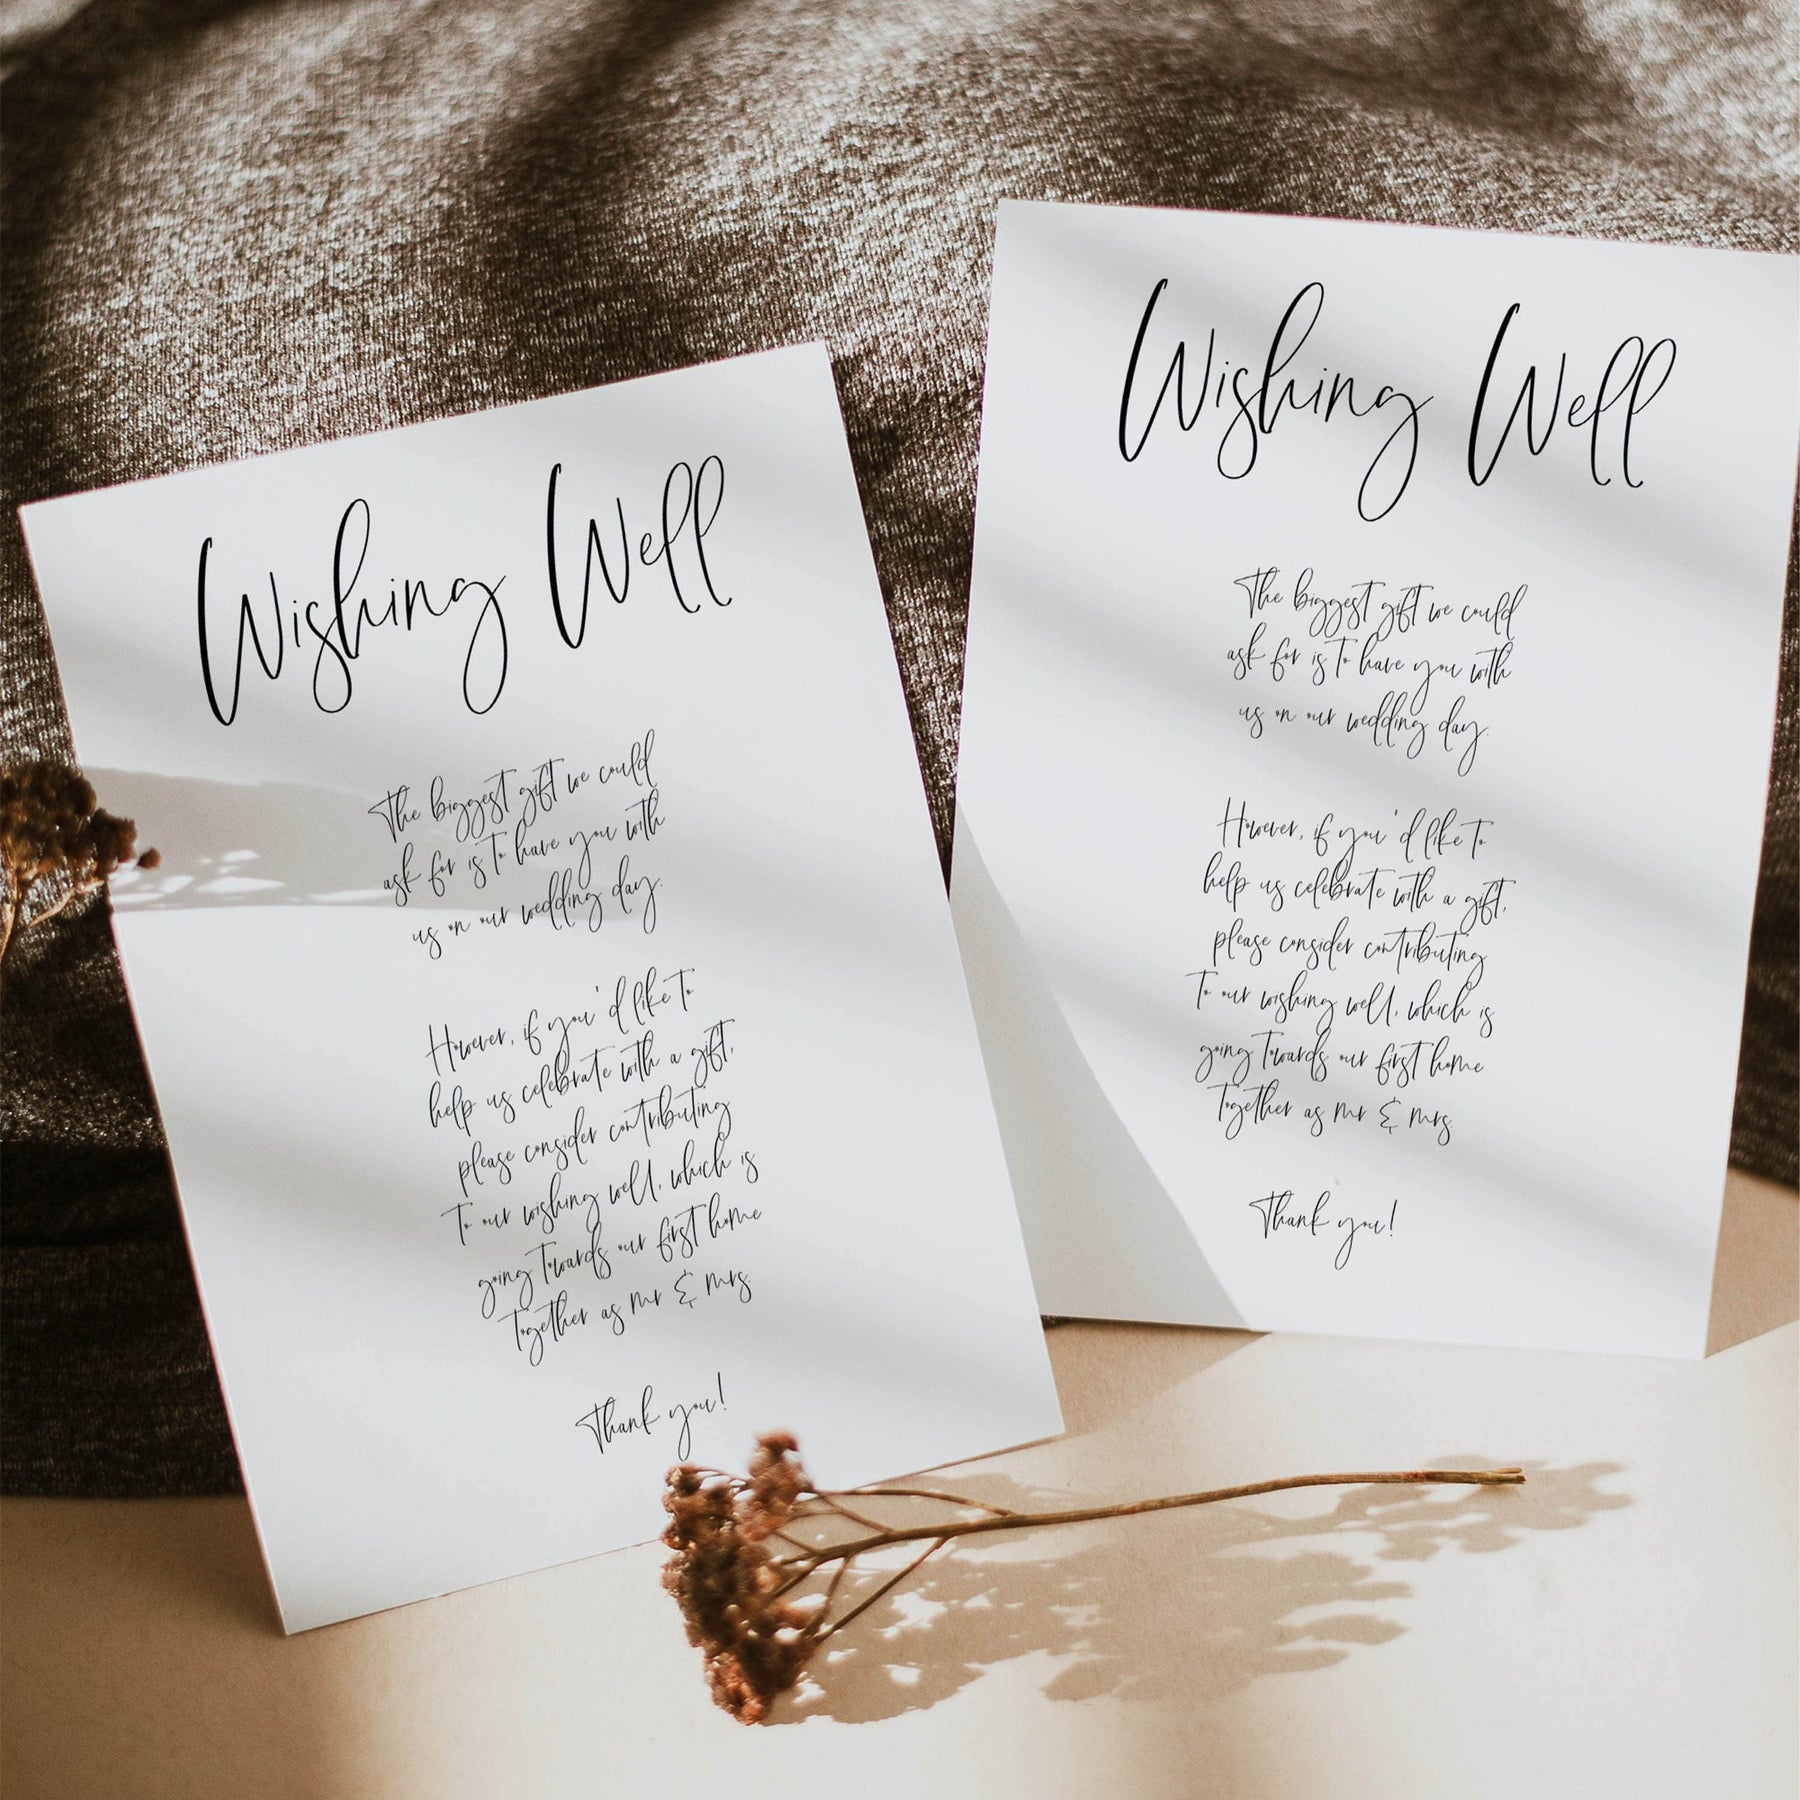 Wishing Well
The biggest gift we could
ask for is to have you with
us on our wedding day.
However, if you'd like to
help us celebrate with a gift,
please consider contributing
to our wishing well, which is
going towards our first home
together as Mr & Mrs.
Thank you!
Wishing Well
The biggest gift we could
ask for is to have you with
us on our wedding day.
However, if you'd like to
help us celebrate with a gift,
please consider contributing
to our wishing well, which is
going towards our first home
together as Mr & Mrs.
Thank you!